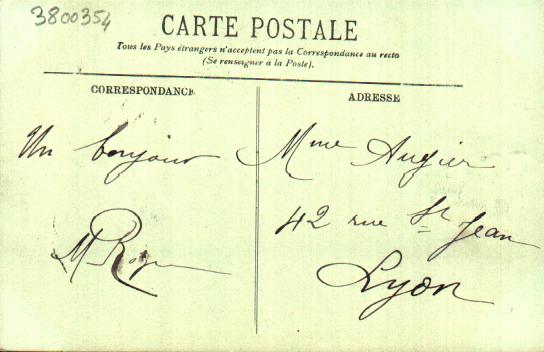 3800354
CARTE POSTALE
Tous les Pays étrangers n'acceptent pas la Correspondance au recto
(Se renseigner à la Poste).
CORRESPONDANCE
Un bonjour
M
ADRESSE
Mme Augier
42 rue St Jean
Lyon